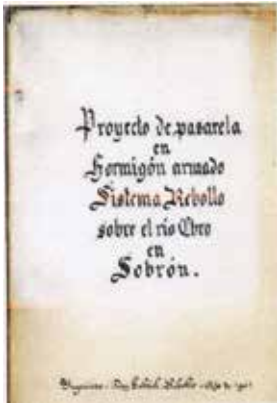 Proyecto de pasarela
en
Hormigón armado
Sistema Rebollo
sobre el río Ebro
en
Sobrón.
Rebollo